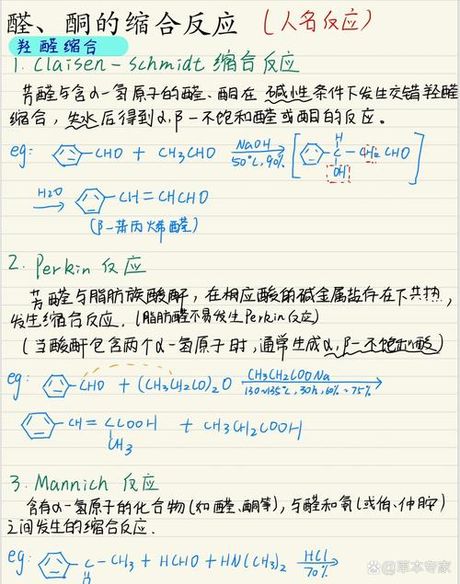 醛、酮的缩合反应 (人名反应)
羟醛缩合
1. Claisen-Schmidt 缩合反应
芳醛与含α-氢原子的醛、酮在碱性条件下发生交错羟醛
缩合，失水后得到α,β-不饱和醛或酮的反应。
eg: -CHO + CH3CHO NaOH 50℃, 90% [ H -C-CH2CHO OH ]
H2O → -CH=CHCHO
(β-苯丙烯醛)
2. Perkin 反应
芳醛与脂肪族酸酐，在相应酸的碱金属盐存在下共热，
发生缩合反应. (脂肪醛不易发生Perkin反应)
(当酸酐包含两个α-氢原子时，通常生成α,β-不饱和酸)
eg: -CHO + (CH3CH2CO)2O CH3CH2COONa 130~135℃, 30h, 60%~75% →
-CH=CCOOH + CH3CH2COOH
CH3
3. Mannich 反应
含有α-氢原子的化合物(如醛、酮等)，与醛和氨(或伯、仲胺)
之间发生的缩合反应.
eg: -C-CH3 + HCHO + HN(CH3)2 HCl 70% →
@草本专家